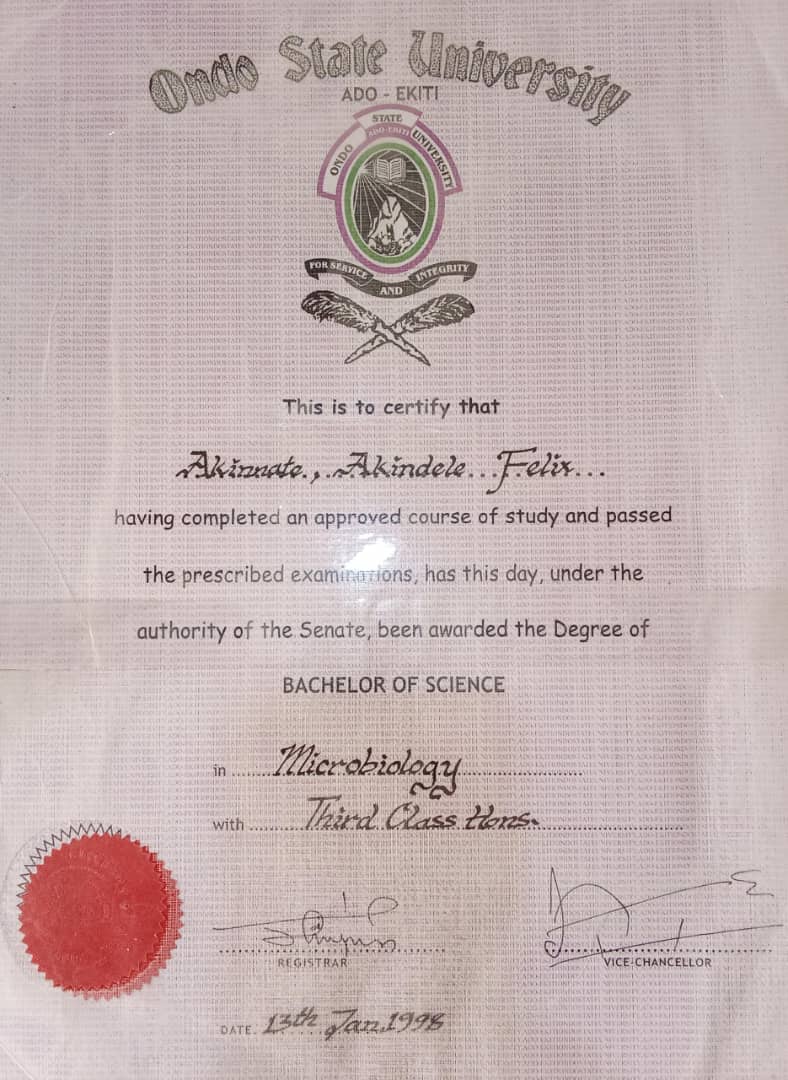 Ondo State University
ADO - EKITI
ONDO STATE UNIVERSITY
ADO-EKITI
FOR SERVICE AND INTEGRITY
This is to certify that
Akinnate., ..Akindele...Felix...
having completed an approved course of study and passed
the prescribed examinations, has this day, under the
authority of the Senate, been awarded the Degree of
BACHELOR OF SCIENCE
in ........Microbiology........................
with ..........Third Class Hons.............................
REGISTRAR
VICE-CHANCELLOR
DATE. 13th Jan. 1998